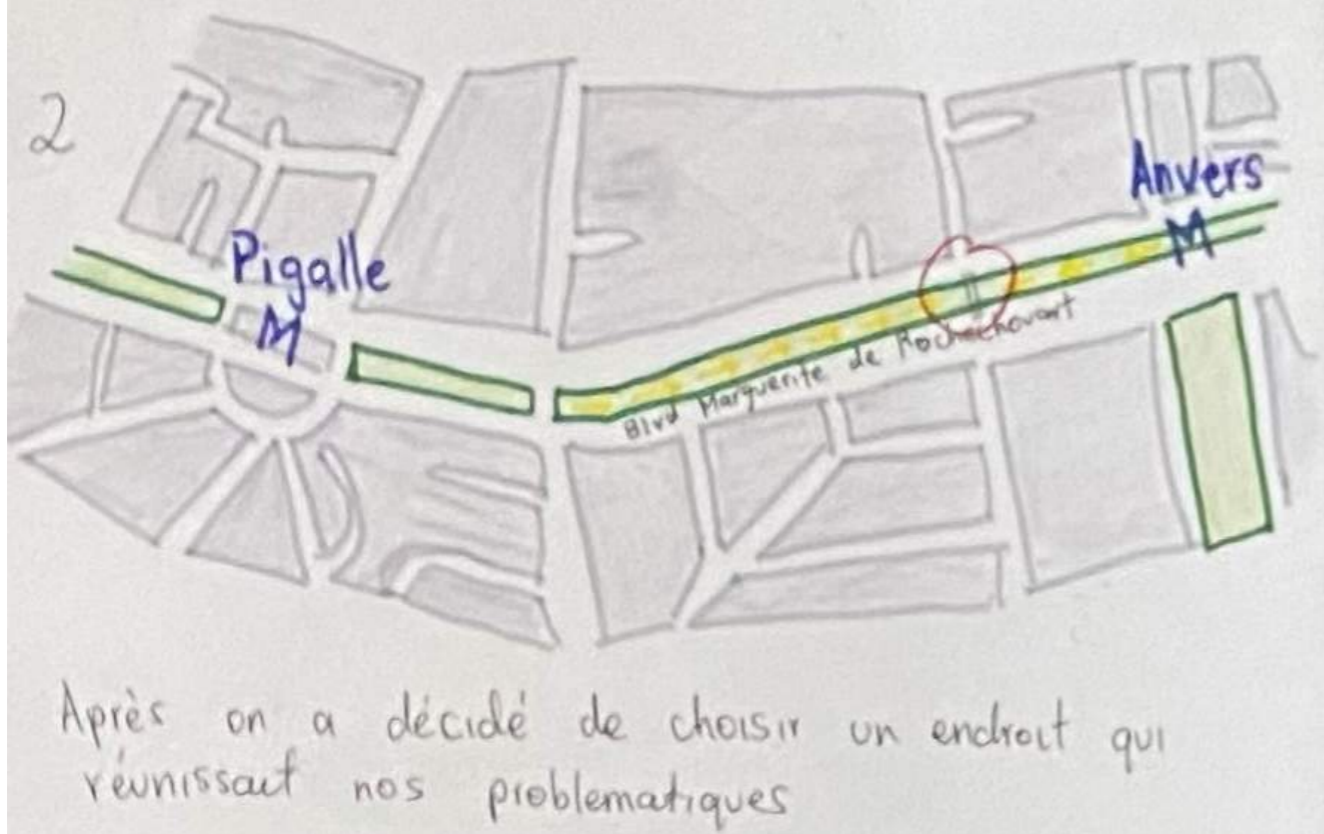 2
Anvers
M
Pigalle
M
Blvd Marguerite de Rochechouart
Après on a décidé de choisir un endroit qui
réunissait nos problematiques